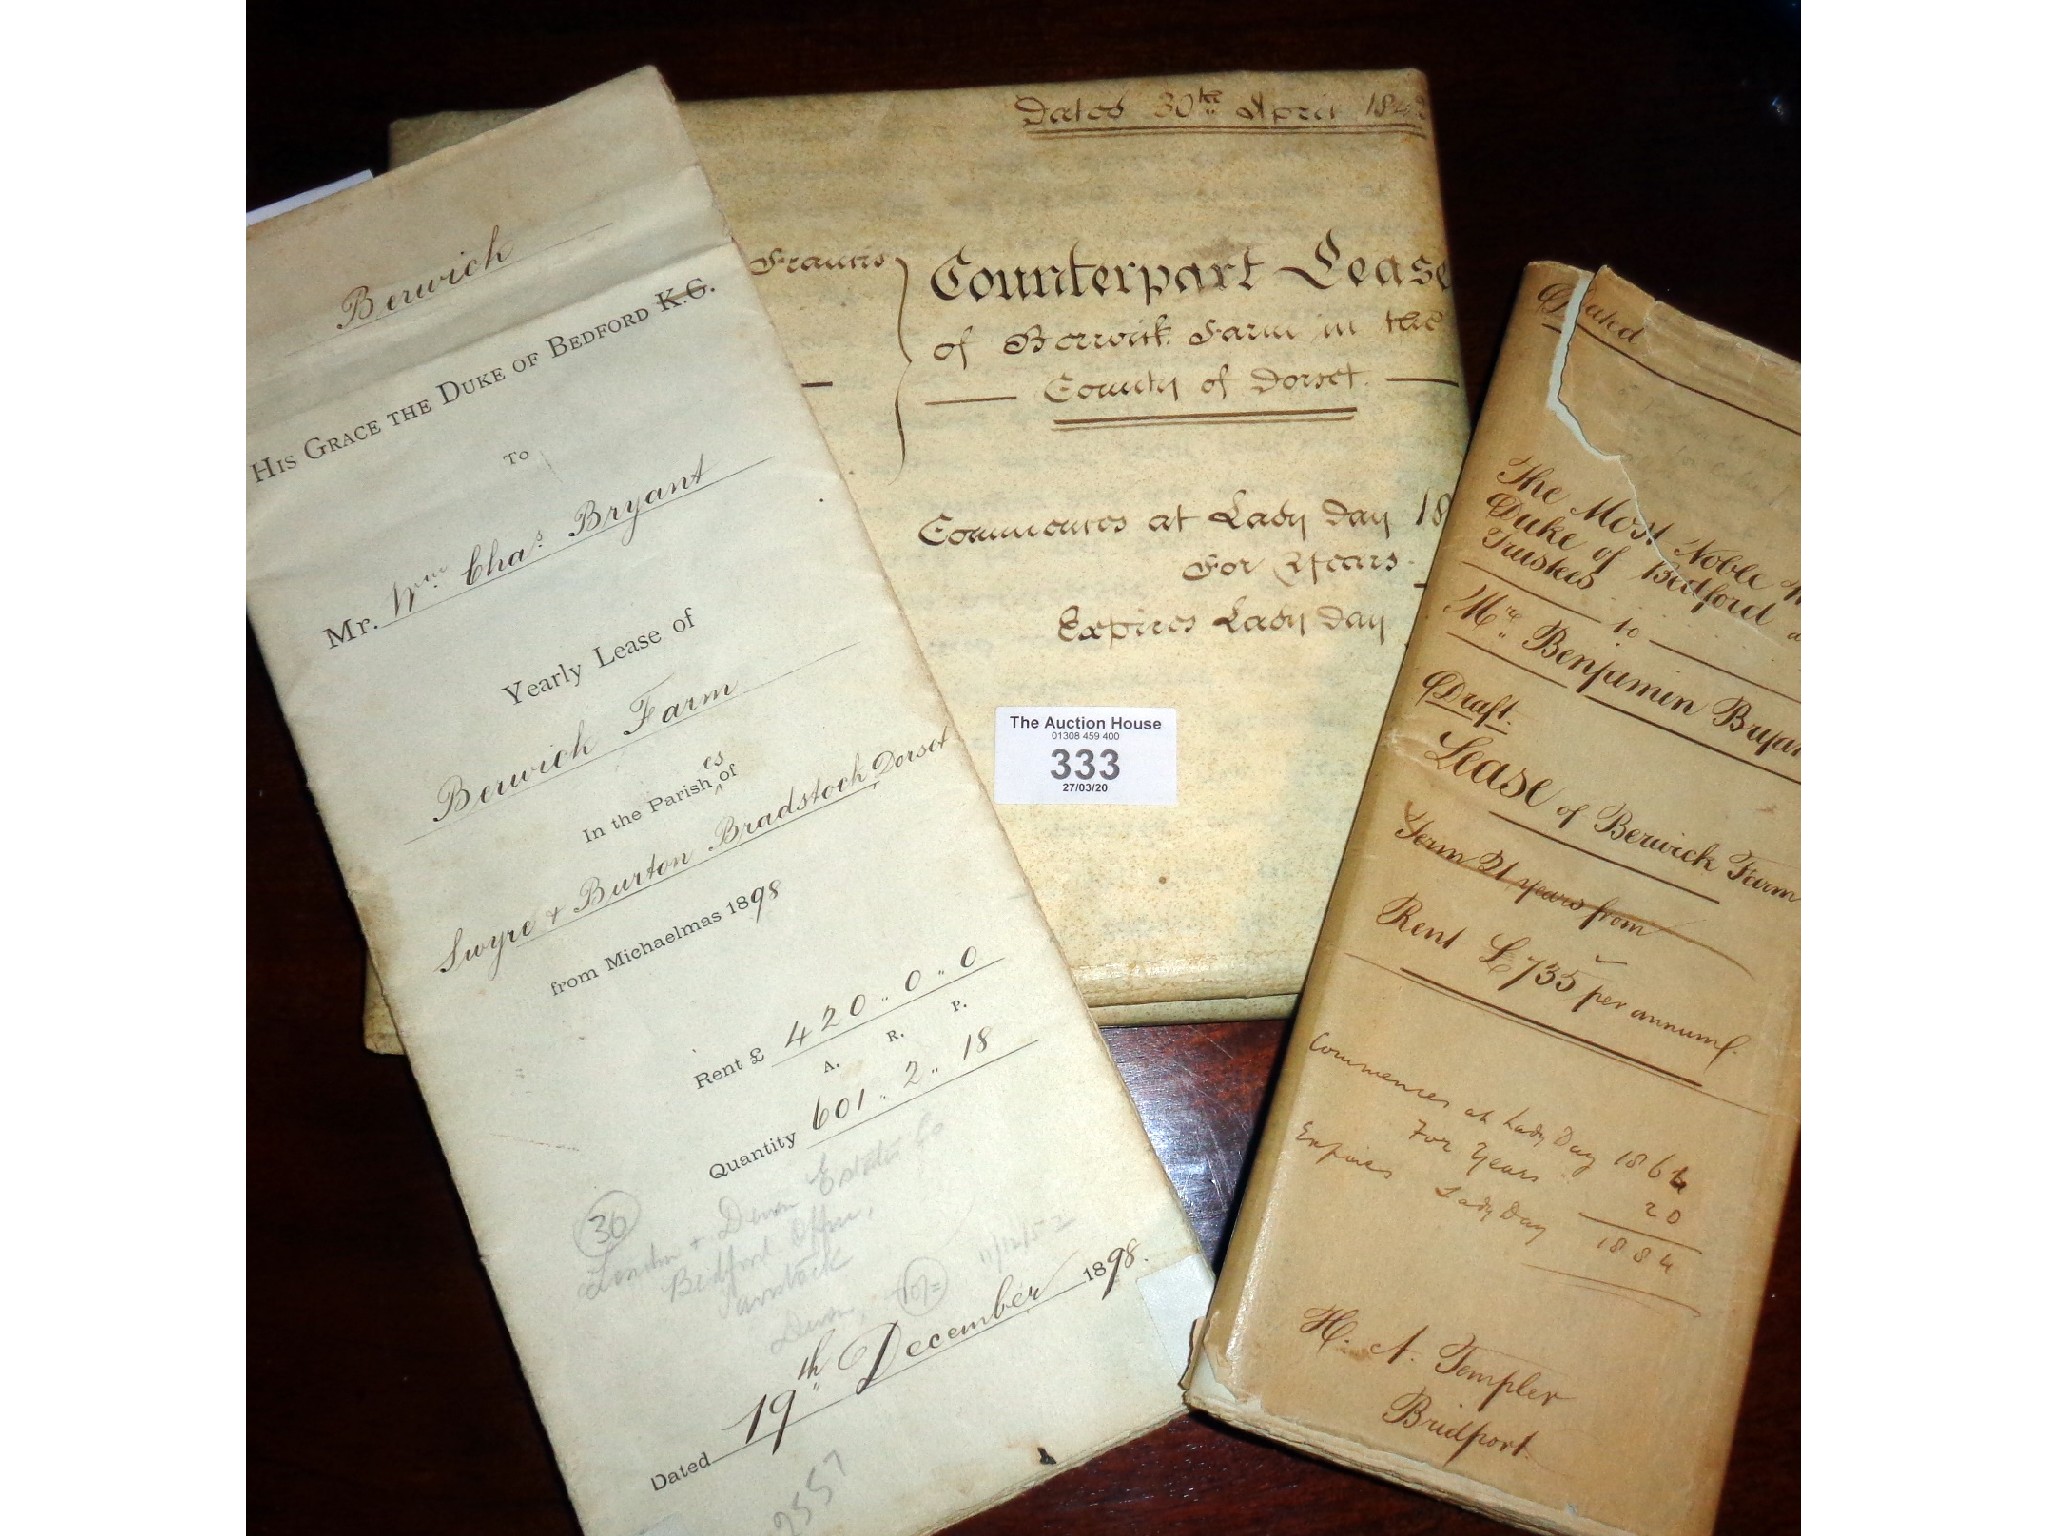 Berwick
HIS GRACE THE DUKE OF BEDFORD K.G.
TO
Mr. Wm Chas. Bryant
Yearly Lease of
Berwick Farm
In the Parishes of
Swyre & Burton Bradstock Dorset
from Michaelmas 1898
Rent £ 420 " 0 " 0
A. R. P.
Quantity 601 " 2 " 18
36
London + Devon Estate Co
Bedford Office,
Tavistock
Devon, 10/= 11/12/52
Dated 19th December 1898.
2557
Dated 30th April
Francis
Counterpart Lease
of Berwick Farm in the
County of Dorset.
Commences at Lady Day 18
For Years
Expires Lady Day
The Auction House
01308 459 400
333
27/03/20
Dated
The Most Noble
Duke of Bedford
Trustees
to
Mr. Benjamin Bryan
Draft.
Lease of Berwick Farm
Term 21 years from
Rent £735 per annum.
Commences at Lady Day 1864
For Years 20
Expires Lady Day 1884
H. A. Templer
Bridport.